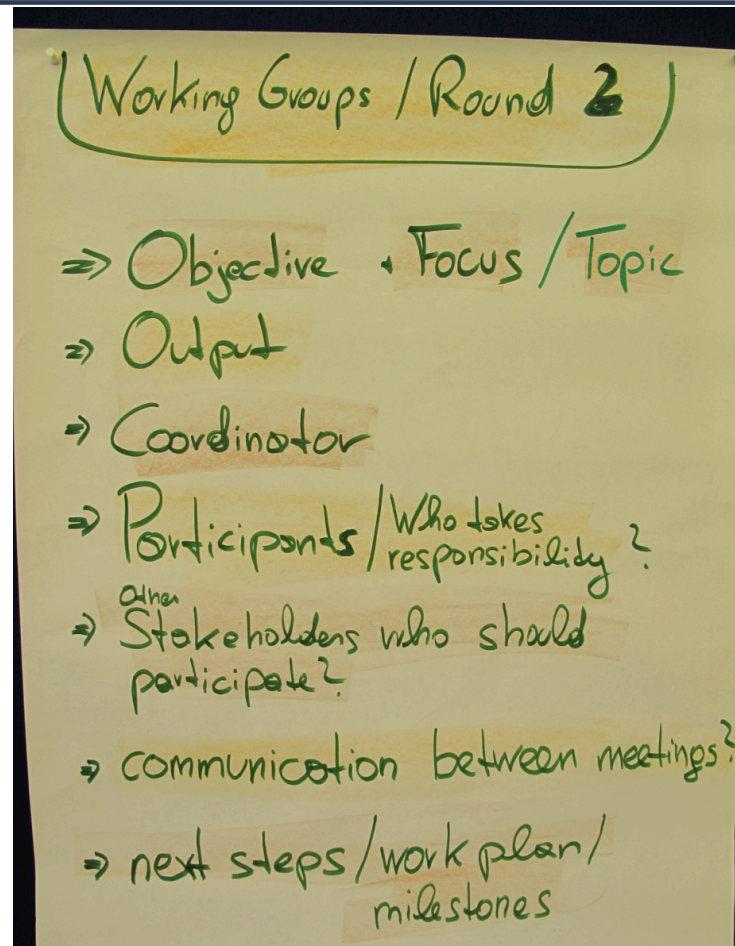 Working Groups / Round 2
=> Objective + Focus / Topic
=> Output
=> Coordinator
=> Participants / Who takes
responsibility ?
Other
=> Stakeholders who should
participate?
=> communication between meetings?
=> next steps / work plan /
milestones